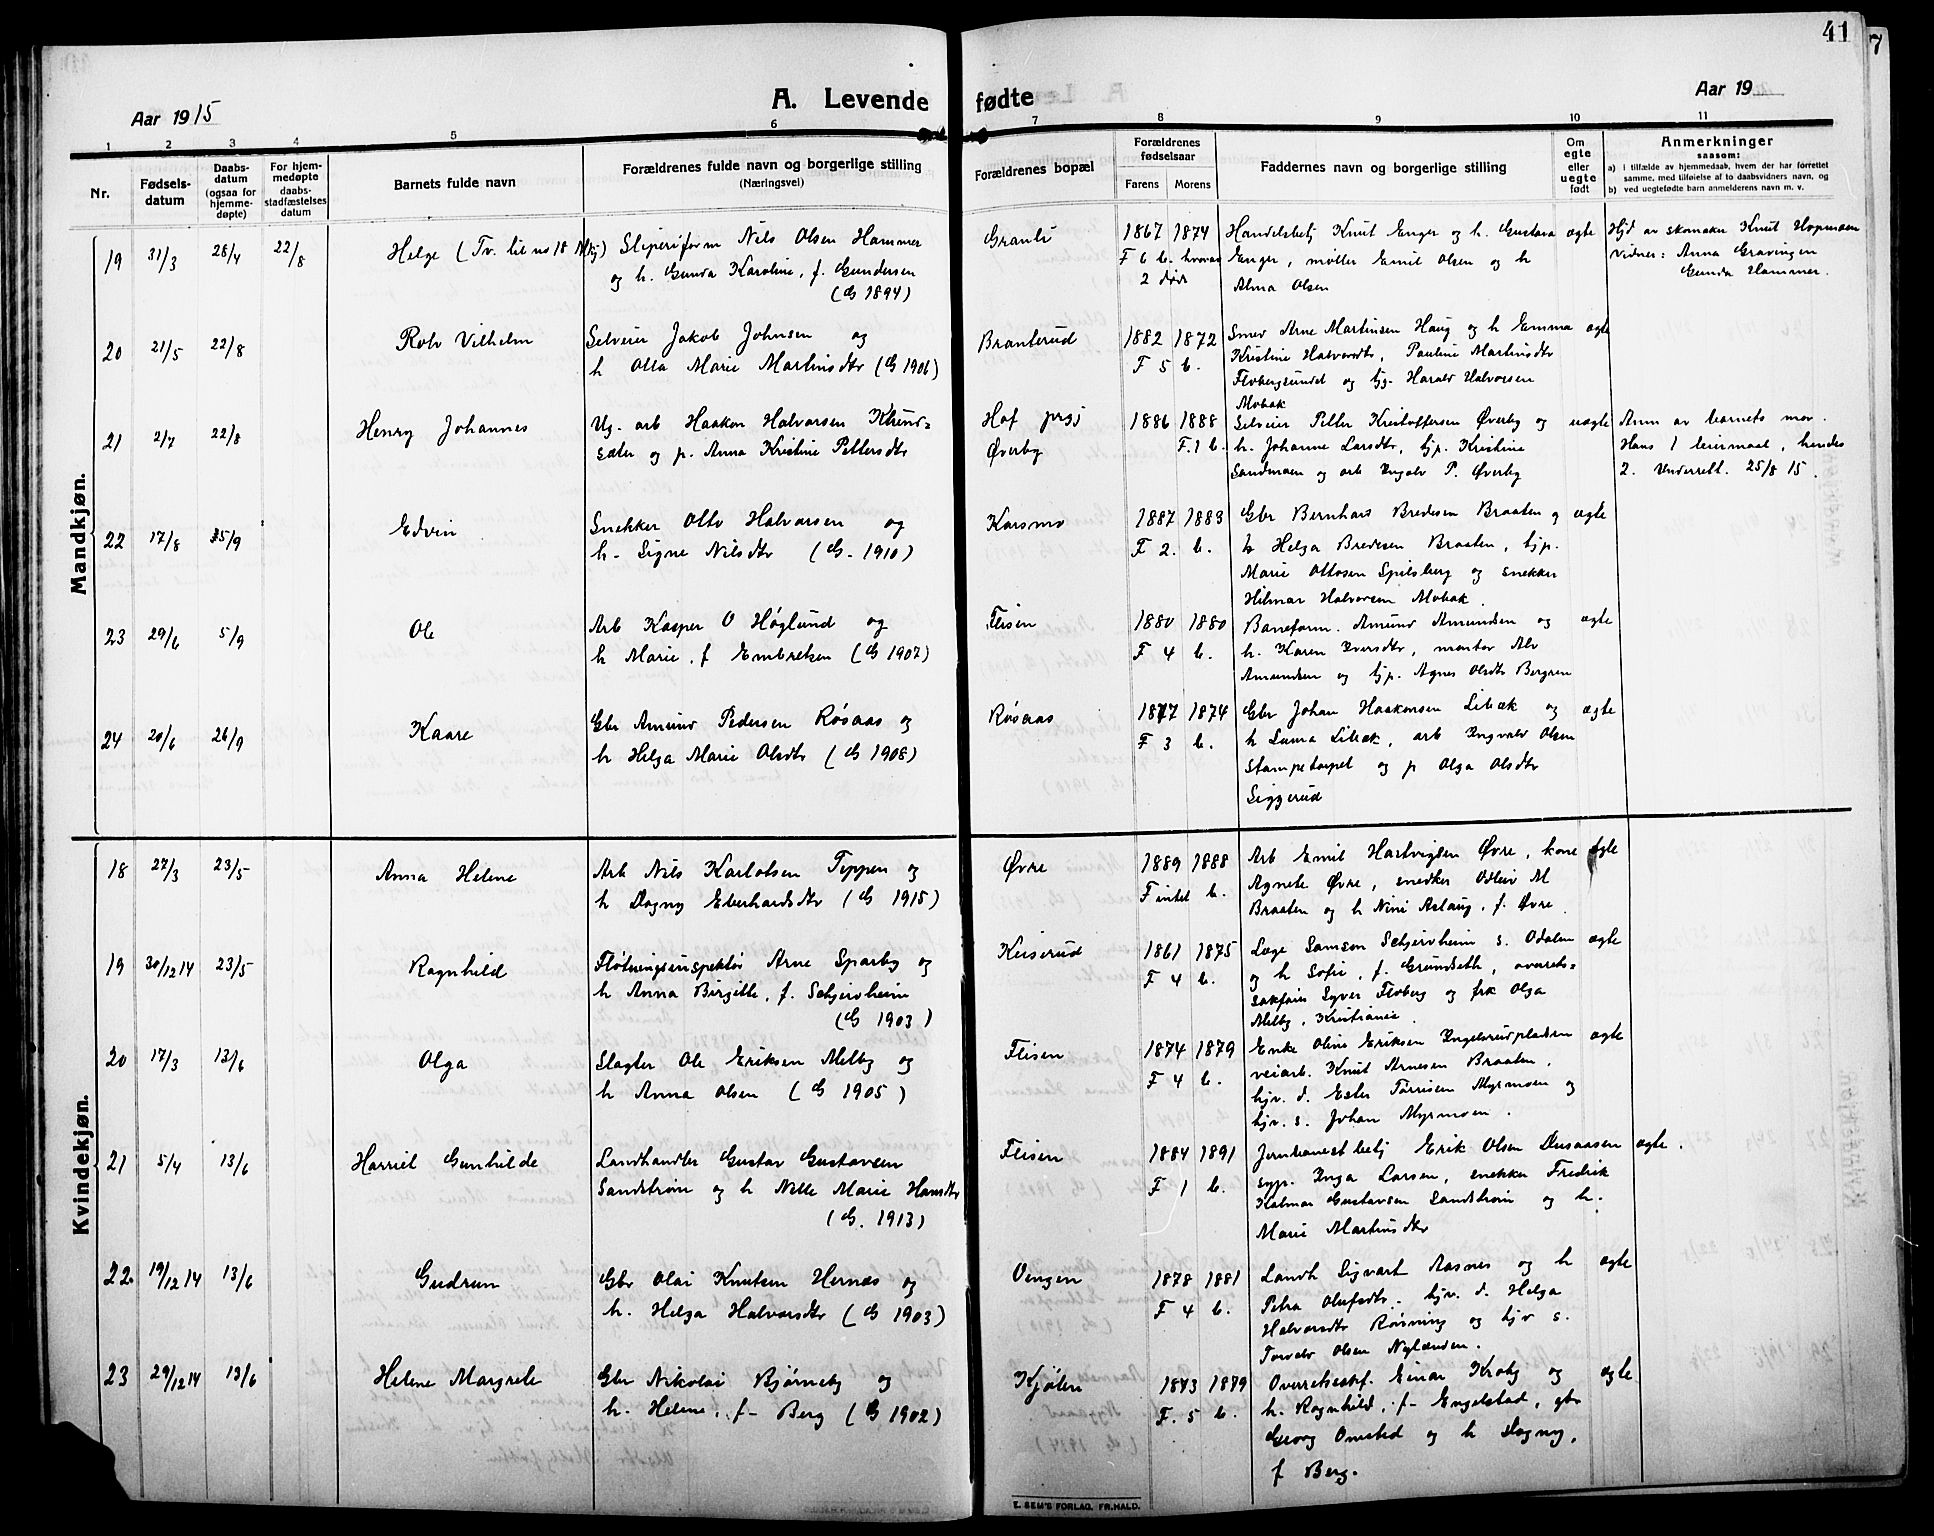 41
7
A. Levende fødte
Aar 1915
Aar 19
1 2 3 4 5 6 7 8 9 10 11
Nr.
Fødsels-
datum
Daabs-
datum
(ogsaa for
hjemme-
døpte)
For hjem-
medøpte
daabs-
stadfæstelses
datum
Barnets fulde navn
Forældrenes fulde navn og borgerlige stilling
(Næringsvei)
Forældrenes bopæl
Forældrenes
fødselsaar
Farens Morens
Faddernes navn og borgerlige stilling
Om
egte
eller
uegte
født
Anmerkninger
saasom:
a) i tilfælde av hjemmedaab, hvem der har forrettet
samme, med tilføielse af to daabsvidners navn, og
b) ved uegtefødte barn anmelderens navn m. v.
Mandkjøn.
19 31/3 28/4 22/8 Helge (Tv. til no 18
Sliperiform Nils Olsen Hammer
og h. Gunda Karoline, f. Gundersen
(G 1894)
Granli
1867 1874
F 6 b. hvorav
2 døde
Handelsbetj Knut Enger og h. Gustava
Enger, møller Emil Olsen og h
Alma Olsen
ægte
Hjd av skomaker Knut Hopmoen
Vidner: Anna Gravingen
Gunda Hammer.
20 21/5 22/8 Rolv Vilhelm
Selveier Jakob Johnsen og
h Olla Marie Martinsdtr (G 1906)
Branterud
1882 1872
F 5 b.
Smed Arne Martinsen Haug og h Emma
Kristine Halvorsdtr, Pauline Martinsdtr
Flobergsundet og tjg. Harald Halvorsen
Mobak
ægte
21 2/7 22/8 Henry Johannes
Ug. arb Haakon Halvorsen Knud-
sæter og p. Anna Kristine Pettersdtr
Hof prgj
Øverby
1886 1888
F. 1 b.
Selveier Petter Kristoffersen Øverby og
h. Johanne Larsdtr, tjp. Kristine
Sandmoen og arb Ingolv P. Øverby
uægte
Anm av barnets mor.
Hans 1 leiermaal, hendes
2. Underrett. 25/8 15.
22 17/8 5/9 Edvin
Snekker Otto Halvorsen og
h. Signe Nilsdtr (G. 1910)
Karsmo
1887 1883
F 2. b.
Gbr Bernhard Bredesen Braaten og
h Helga Bredesen Braaten, tjp.
Marie Ottosen Spilsberg og snekker
Hilmar Halvorsen Mobak.
ægte
23 29/6 5/9 Ole
Arb Kasper O Høglund og
h Marie, f Embretsen (G 1907)
Fleisen
1880 1880
F 4 b.
Baneform. Amund Amundsen og
h. Karen Iversdtr, montør Alv
Amundsen og tjp. Agnes Olsdtr Bergren
ægte
24 20/6 26/9 Kaare
Gbr Amund Pedersen Røsaas og
h Helga Marie Olsdtr (G 1908)
Røsaas
1877 1874
F 3 b.
Gbr Johan Haakonsen Libæk og
h Laura Libæk, arb Ingvald Olsen
Stampetorpet og p Olga Olsdtr
Siggerud
ægte
Kvindekjøn.
18 27/3 23/5 Anna Helene
Arb Nils Karlotsen Teppen og
h Dagny Eberhardsdtr (G 1915)
Øvre
1889 1888
F intet b.
Arb Emil Hartvigsen Øvre, kone
Agnete Øvre, snedker Odleiv M
Braaten og h Nini Aslaug, f. Øvre
ægte
19 30/12 14 23/5 Ragnhild
Fløtningsinspektør Arne Sparby og
h Anna Birgitte, f. Schjervheim
(G 1903)
Keiserud
1861 1875
F 4 b.
Læge Samson Schjervheim s. Odalen
og h Sofie, f. Grundseth, overrets-
sakfører Syver Floberg og frk Olga
Melby, Kristiania.
ægte
20 17/3 13/6 Olga
Slagter Ole Eriksen Melby og
h Anna Olsen (G 1905)
Fleisen
1874 1879
F 4 b.
Enke Oline Eriksen Ingelsrudpladsen
veiarb. Knut Arnesen Braaten,
hjv. d. Ester Torrisen Myrmoen og
hjv. s. Johan Myrmoen.
ægte
21 5/4 13/6 Harriet Gunhilde
Landhandler Gustav Gustavsen
Sandstrøm og h Nelle Marie Hansdtr
(G. 1913)
Fleisen
1884 1891
F 1 b.
Jernbanestbetj Erik Olsen Dusaasen
syp. Inga Larsen, snekker Fredrik
Kalmar Gustavsen Sandstrøm og h.
Marie Martinsdtr
ægte.
22. 19/12 14 13/6 Gudrun
Gbr Olai Knutsen Hernæs og
h. Helga Halvorsdtr (G 1903)
Vengen
1878 1881
F 4 b.
Landh Sigvart Aasnes og h
Petra Olufsdtr. hjv. d. Helga
Halvorsdtr Rønning og hjv s.
Torvald Olsen Nylænden.
ægte
23 29/12 14 13/6 Helene Margrete
Gbr Nikolai Bjørneby og
h. Helene, f- Berg (G 1902)
Kjølen
1873 1879
F. 5 b.
Overretssakf. Einar Kroby og
h. Ragnhild, f- Engelstad, gbr
Georg Omsted og h Dagny,
f Berg.
ægte
E. SEM'S FORLAG, FR.HALD.